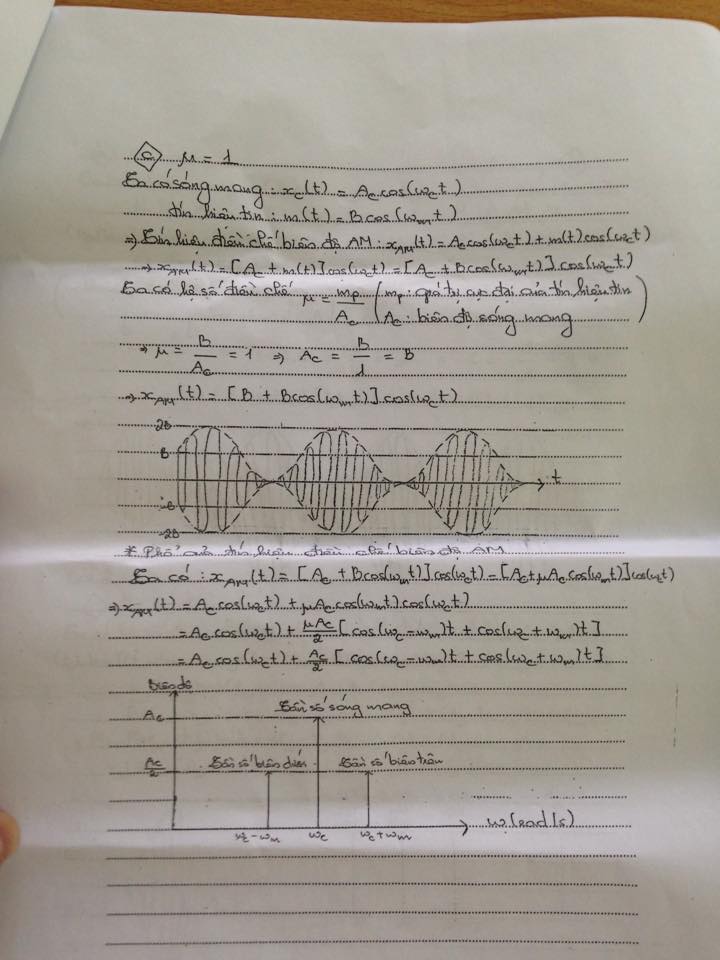 c) μ = 1
Ta có sóng mang : x_c(t) = A_c cos(ω_c t)
tín hiệu tin : m(t) = B cos(ω_m t)
⇒ Tín hiệu điều chế biên độ AM : x_AM(t) = A_c cos(ω_c t) + m(t) cos(ω_c t)
⇒ x_AM(t) = [A_c + m(t)] cos(ω_c t) = [A_c + B cos(ω_m t)] cos(ω_c t)
Ta có hệ số điều chế μ = m_p / A_c (m_p : giá trị cực đại của tín hiệu tin
A_c : biên độ sóng mang)
⇒ μ = B / A_c = 1 ⇒ A_c = B / 1 = B
⇒ x_AM(t) = [B + B cos(ω_m t)] cos(ω_c t)
2B
B
t
-B
-2B
* Phổ của tín hiệu điều chế biên độ AM
Ta có : x_AM(t) = [A_c + B cos(ω_m t)] cos(ω_c t) = [A_c + μA_c cos(ω_m t)] cos(ω_c t)
⇒ x_AM(t) = A_c cos(ω_c t) + μA_c cos(ω_m t) cos(ω_c t)
= A_c cos(ω_c t) + μA_c/2 [cos(ω_c − ω_m)t + cos(ω_c + ω_m)t]
= A_c cos(ω_c t) + A_c/2 [cos(ω_c − ω_m)t + cos(ω_c + ω_m)t]
Biên độ
A_c
Tần số sóng mang
A_c/2
Tần số biên dưới
Tần số biên trên
ω_c − ω_m
ω_c
ω_c + ω_m
ω (rad/s)